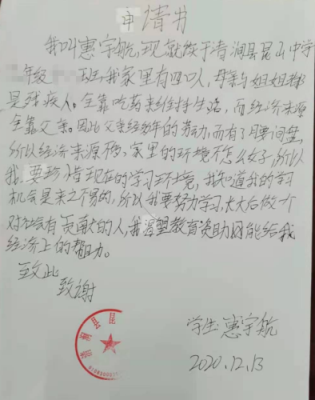 申请书
我叫惠宇航,现就读于清涧县昆山中学
年级 班,我家里有四口人,母亲与姐姐都
是残疾人。全靠吃药来维持生活,而经济来源
全靠父亲。因此父亲经年的劳动,而有了腰间盘,
所以经济来源,家里的环境不怎么好,所以
我要珍惜现在的学习环境,我知道我的学习
机会是来之不易的,所以我要努力学习,长大后做一个
对社会有贡献的人,我希望教育资助网能给我
经济上的帮助。
致此
致谢
学生:惠宇航
2020.12.13